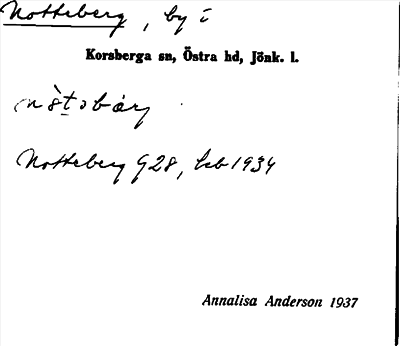 Notteberg, by i
Korsberga sn, Östra hd, Jönk. l.
Notteberg G28, lsb 1934
Annalisa Anderson 1937